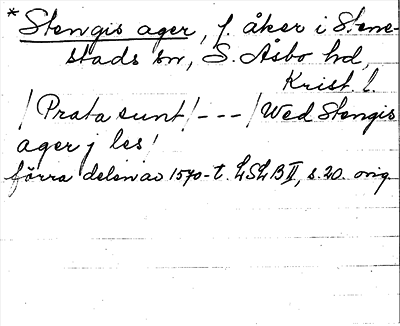 * Stengis ager, f. åker i Stene-
stads sn, S. Åsbo hd,
Krist. l.
/ Prata sunt / - - - / Wed Stengis
ager j les /
förra delen av 1570-t. LSLB II, s. 20. orig.